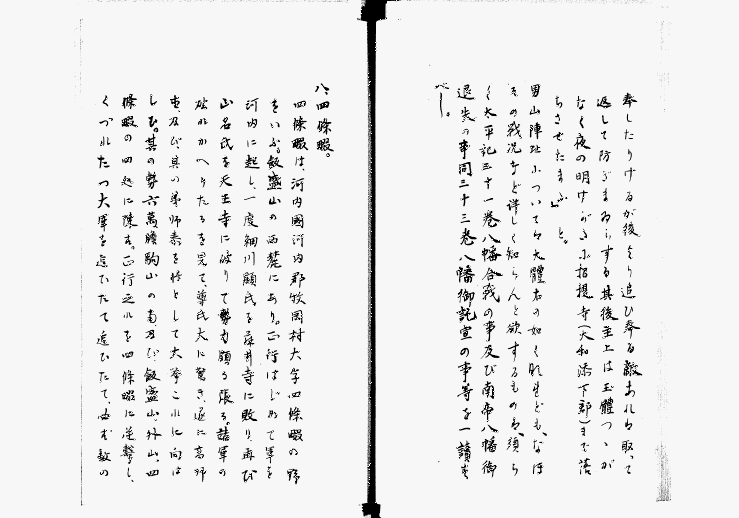 奉したりけるが後より追ひ奉る敵あれば取つて
返して防ぎまゐらする其後主上は玉體つゝが
なく夜の明けがたに招提寺（大和添下郡）まで落
ちさせたまふ」と。
男山陣址については大體右の如くなれども、なほ
その戦况など詳しく知らんと欲するものは、須ら
く太平記三十一巻八幡合戦の事及び南帝八幡御
退失の事同三十三巻八幡御託宣の事等を一讀す
べし。
八、四條畷。
四條畷は、河内國河内郡牧岡村大字四條畷の歸
をいふ。飯盛山の西麓にあり。正行はじめて軍を
河内に起し、一度細川顯氏を藤井寺に敗り、再び
山名氏を天王寺に破りて勢力頗る張る。諸軍の
破れかへりたるを見て、尊氏大に驚き、遂に高師
直及び其の弟師泰を將として大擧これに向は
しむ。其の勢六萬騎駒山の南及び飯盛山、外山、四
條畷の四処に陳す。正行之れを四條畷に逆撃し、
くづれたつ大軍を追ひたて追ひたて、